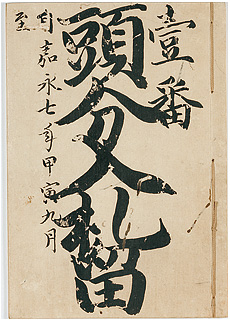 壹番
頭分入札留
自嘉永七年甲寅九月
至